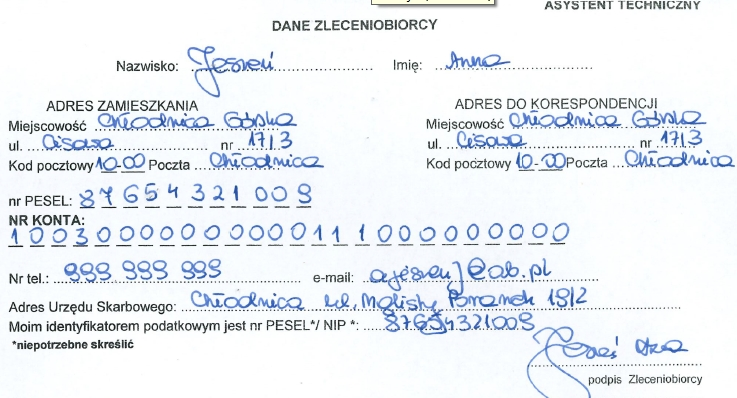 ASYSTENT TECHNICZNY
DANE ZLECENIOBIORCY
Nazwisko: Jesień Imię: Anna
ADRES ZAMIESZKANIA
Miejscowość Chłodnica Górska
ul. Cisowa nr 17/3
Kod pocztowy 10-00 Poczta Chłodnica
ADRES DO KORESPONDENCJI
Miejscowość Chłodnica Górska
ul. Cisowa nr 17/3
Kod pocztowy 10-00 Poczta Chłodnica
nr PESEL: 87654321009
NR KONTA:
10030000000000111000000000
Nr tel.: 999 999 999 e-mail: ajesien@ab.pl
Adres Urzędu Skarbowego: Chłodnica ul. 18/2
Moim identyfikatorem podatkowym jest nr PESEL*/ NIP *: 87654321009
*niepotrzebne skreślić
Jesień Anna
podpis Zleceniobiorcy